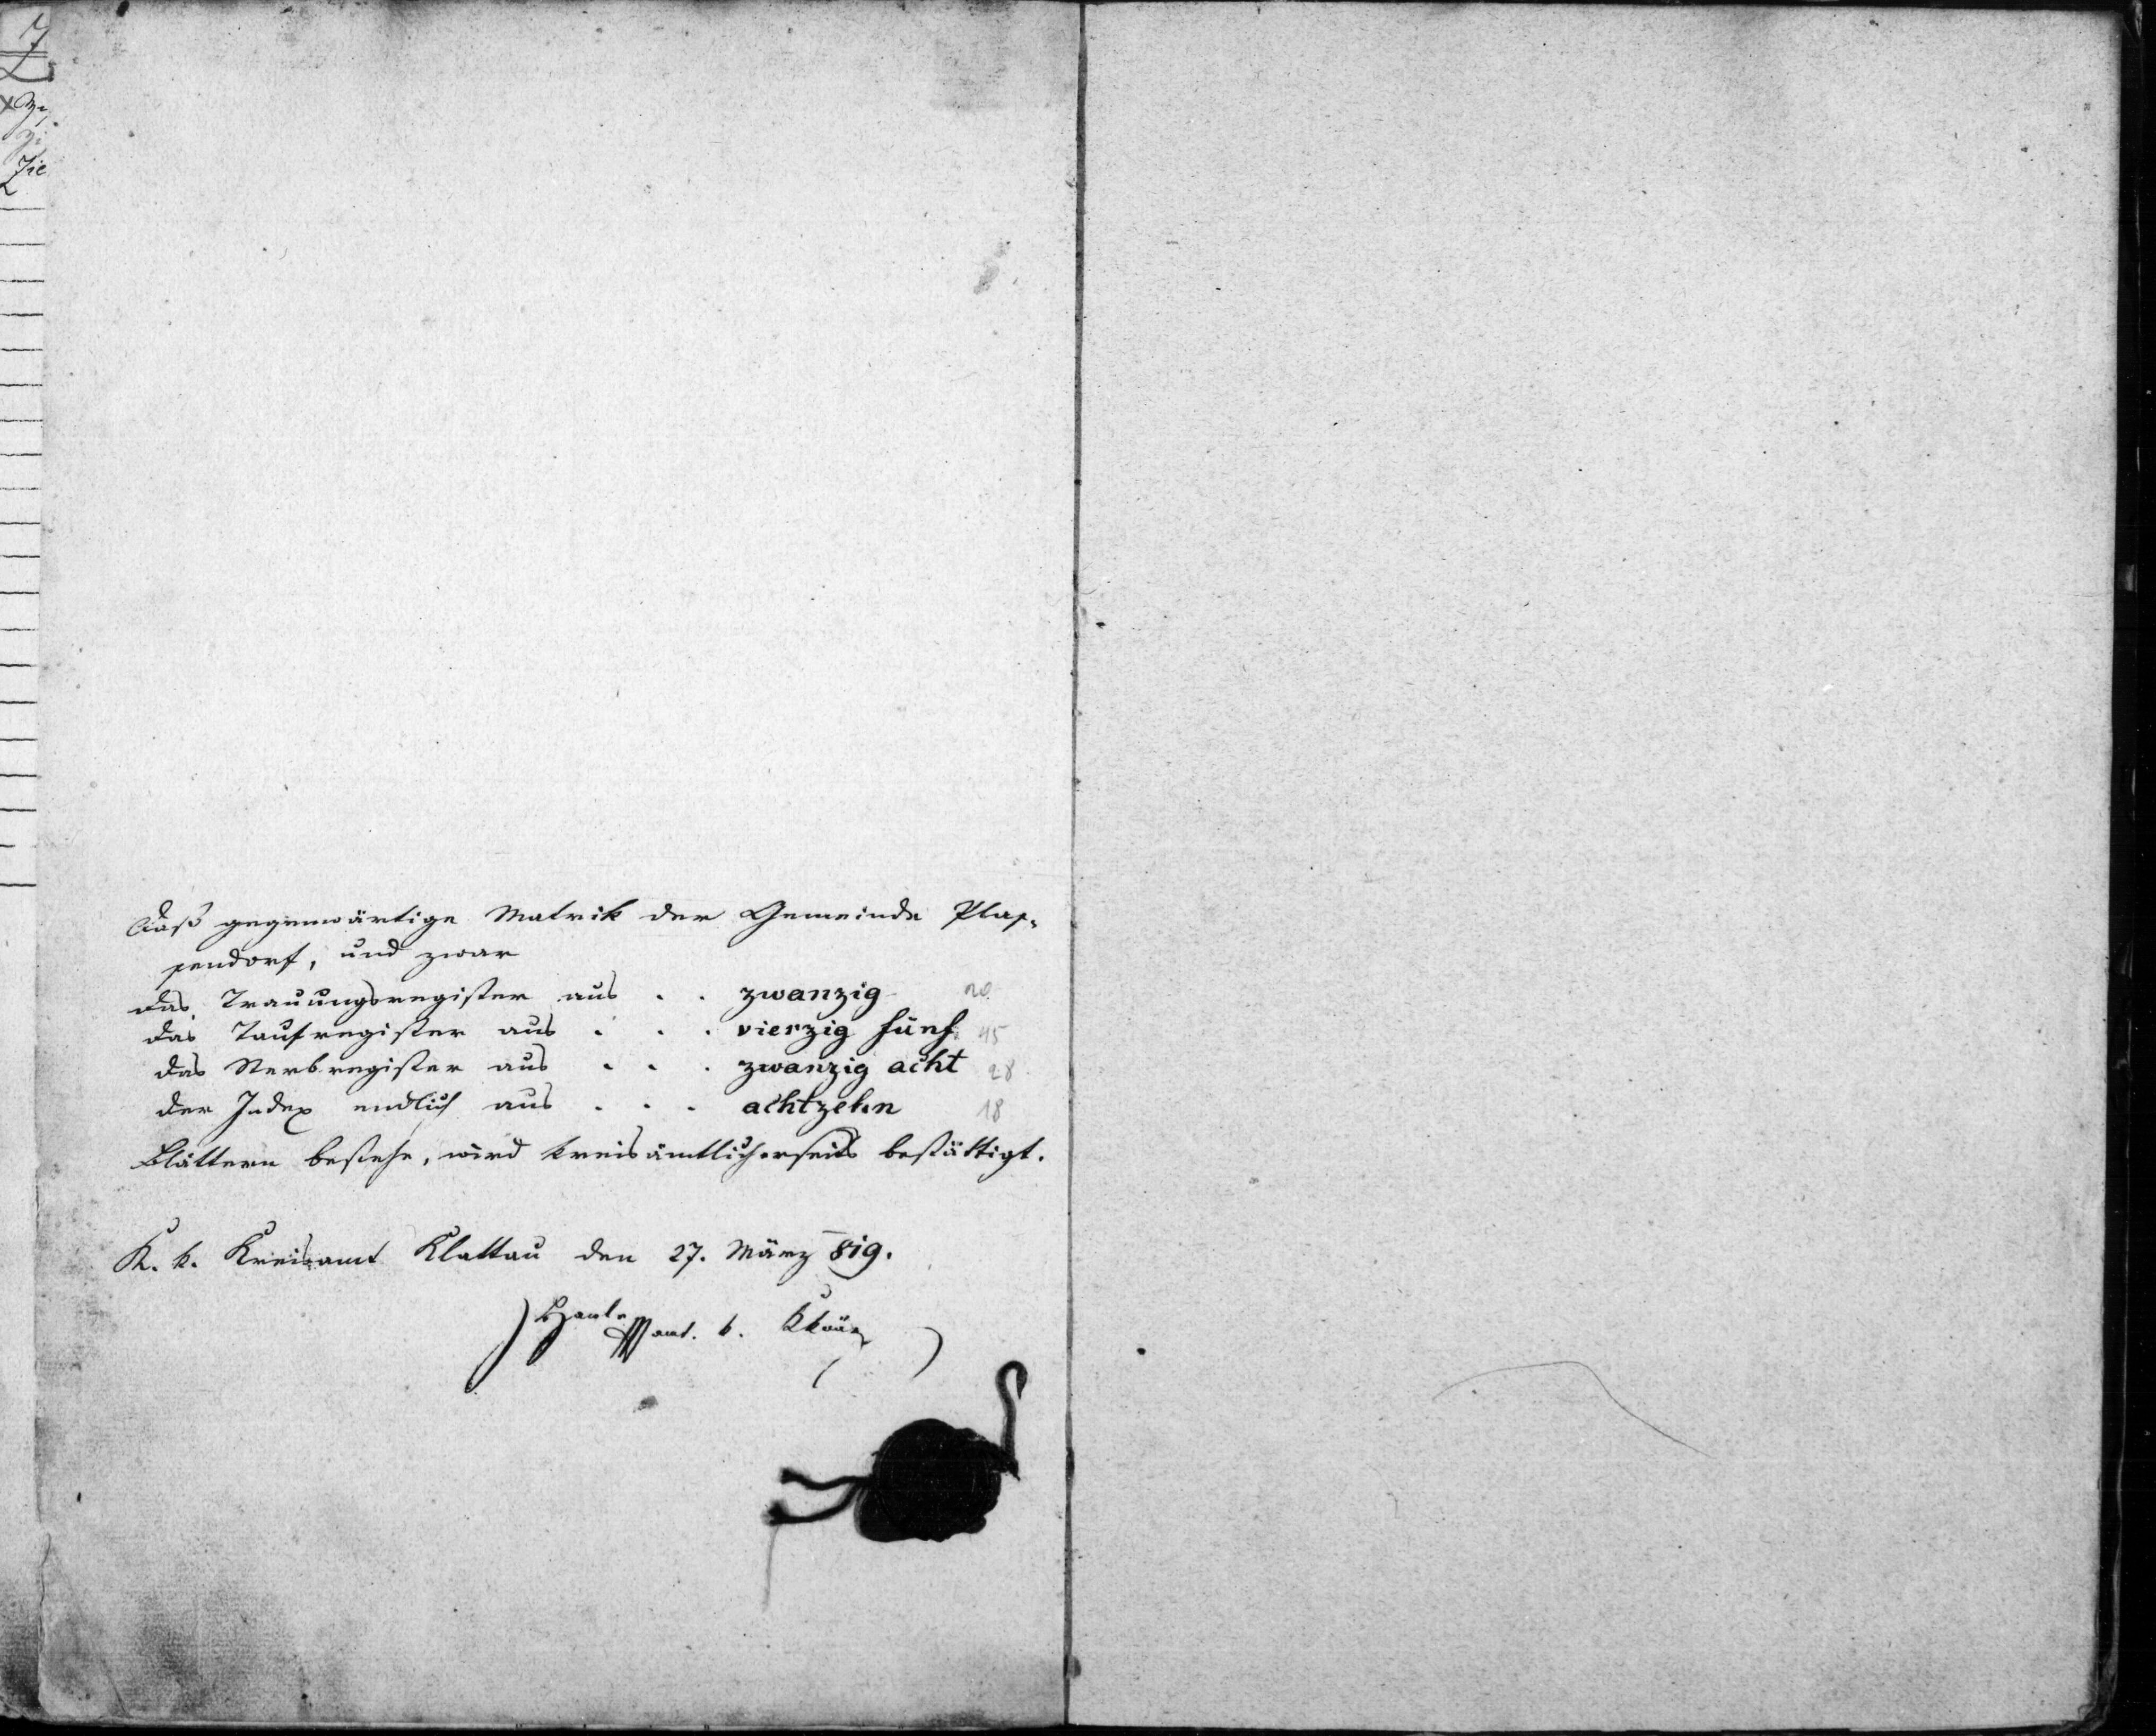 Daß gegenwärtige Matrik der Gemeinde Plap-
pendorf, und zwar
das Trauungsregister aus . . zwanzig 20
das Taufregister aus . . . vierzig fünf 45
das Sterbregister aus . . . zwanzig acht 28
der Index endlich aus . . . achtzehn 18
Blättern bestehe, wird kreisämtlicherseits bestättigt.
K. k. Kreisamt Klattau den 27. März 819.